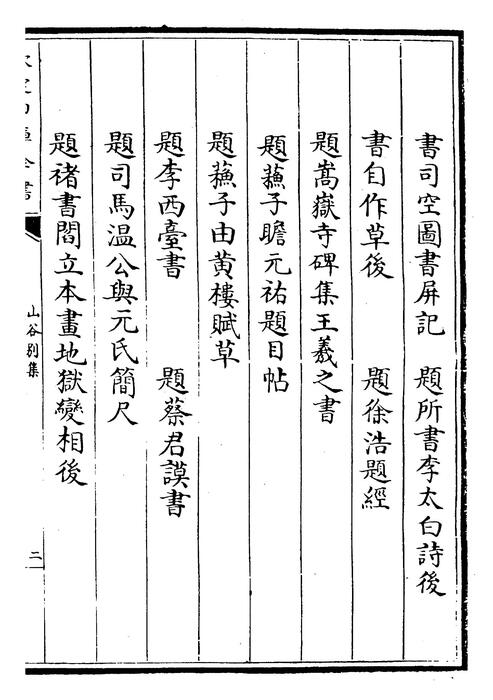 書司空圖書屏記　題所書李太白詩後
書自作草後　　　題徐浩題經
題嵩嶽寺碑集王羲之書
題蘓子瞻元祐題目帖
題蘓子由黄樓賦草
題李西臺書　　　題蔡君謨書
題司馬温公與元氏簡尺
題禇書閻立本畫地獄變相後
欽定四庫全書
山谷别集
二